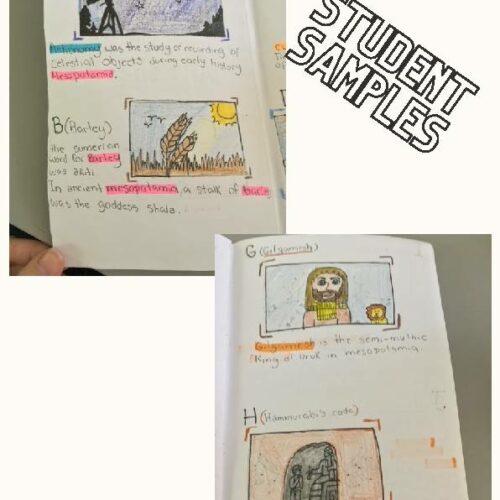 STUDENT
SAMPLES
Astronomy was the study or recording of
celestial objects during early history
Mesopotamia.
B (Barley)
the sumerian
word for Barley
was
In ancient mesopotamia, a stalk of
was the goddess Shala.
G (Gilgamesh)
Gilgamesh is the semi-muthic
King of Uruk in mesopotamia
H (Hammurabi's code)